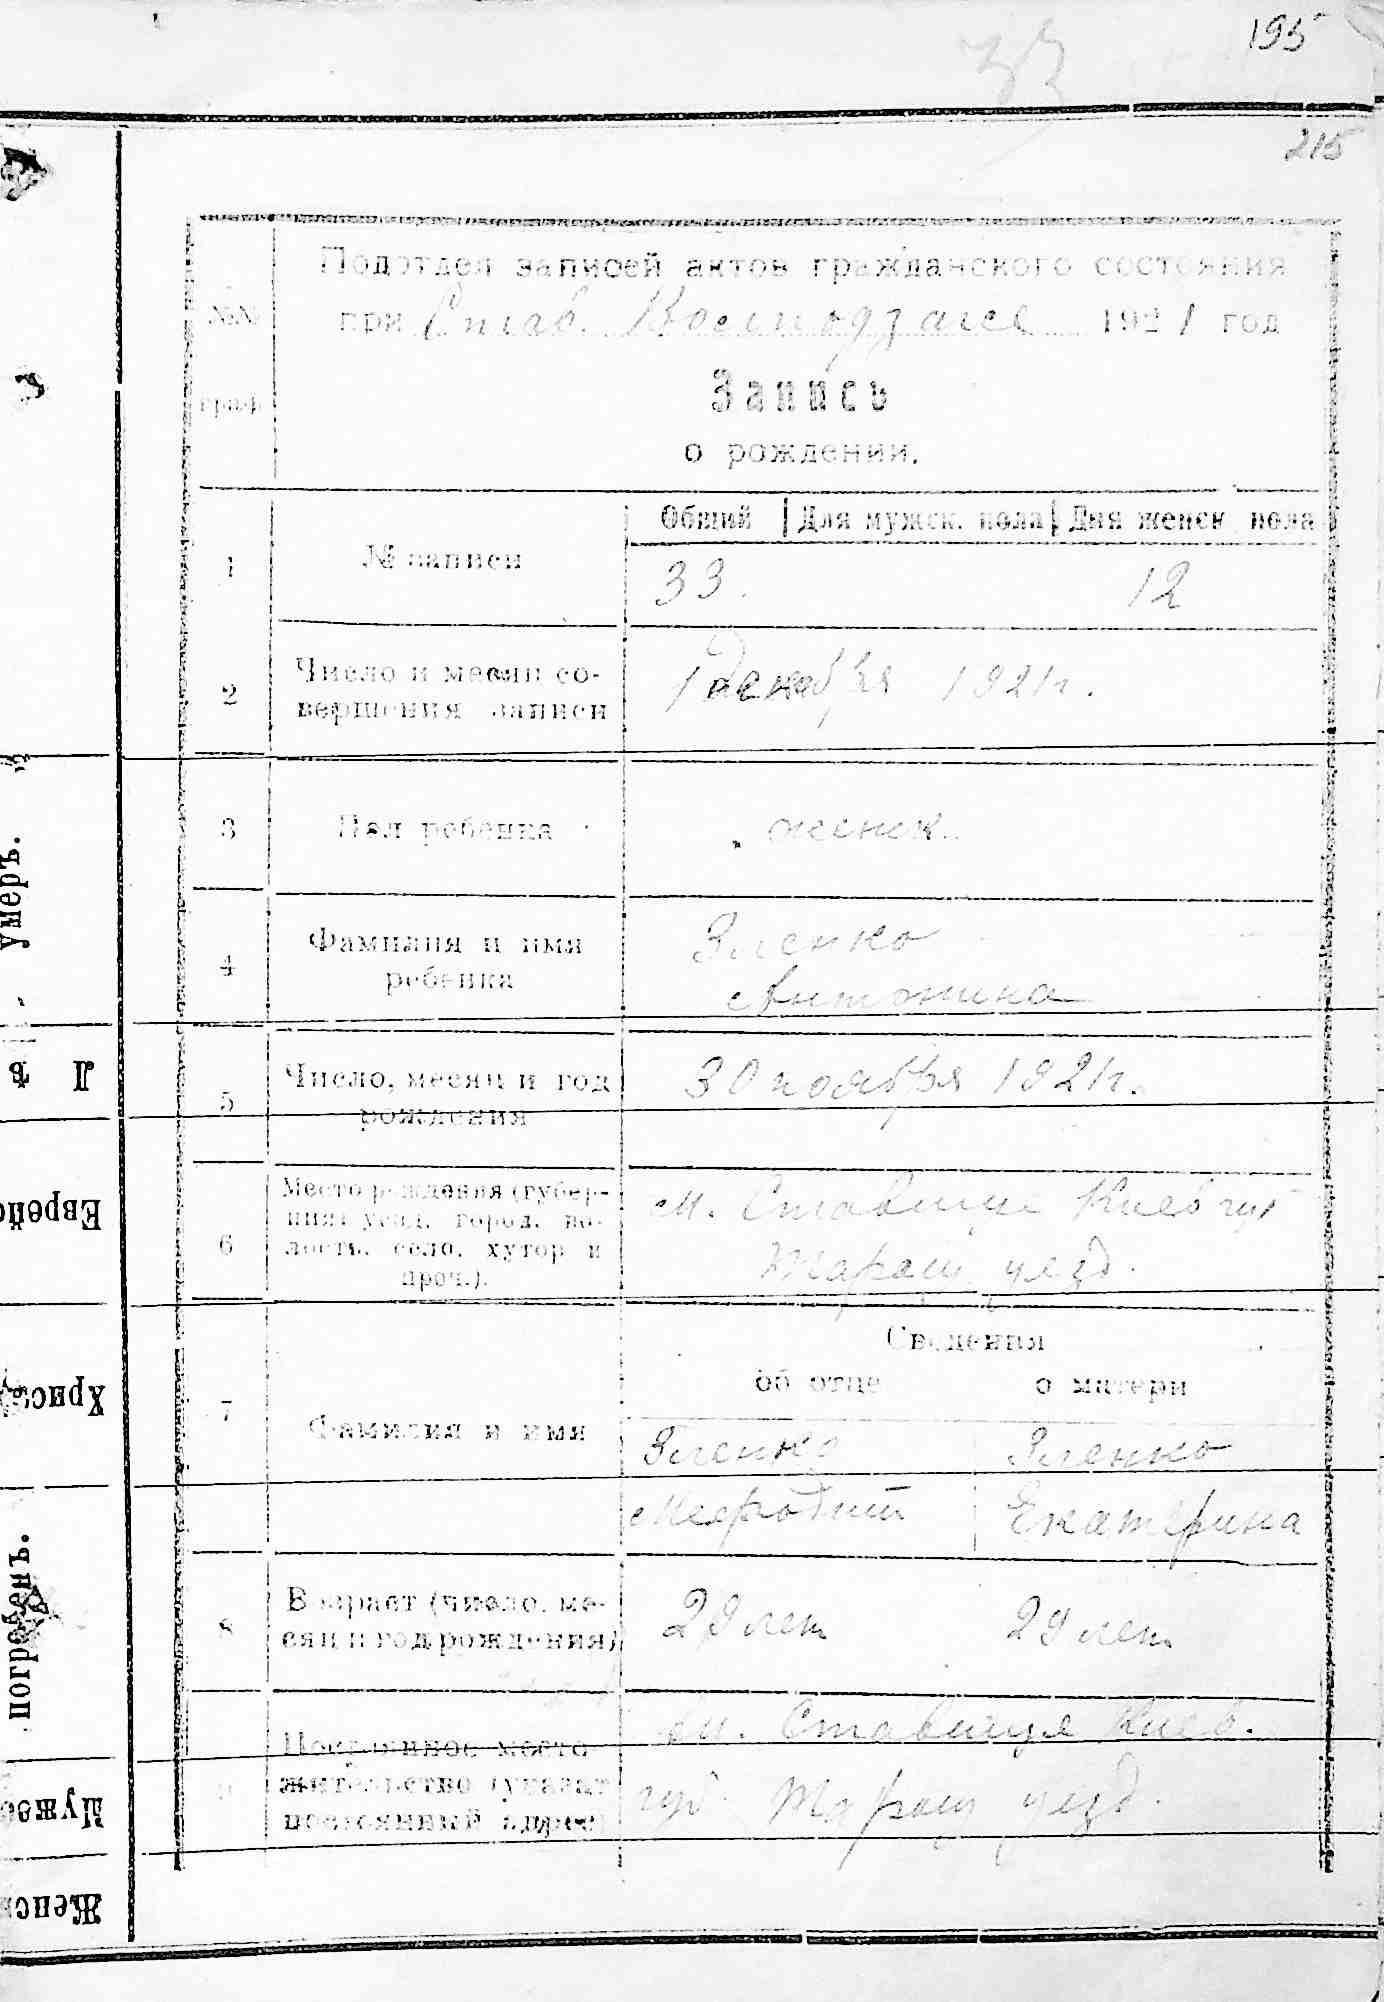 195
33
215
Подотдел записей актов гражданского состояния
при Став. 1921 год
№№ граф
Запись
о рождении.
Общий Для мужск. пола Для женск. пола
1 № записи 33. 12
2 Число и месяц со-
вершения записи
1 декабря 1921 г.
3 Пол ребенка женск.
4 Фамилия и имя
ребенка
Зленко
Антонина
5 Число, месяц и год
рождения
30 ноября 1921 г.
6 Место рождения (губер-
ния, уезд, город, во-
лость, село, хутор и
проч.).
м. Ставище Киев губ
Таращ уезд.
Сведения
об отце о матери
7 Фамилия и имя
Зленко Зленко
Мефодий Екатерина
8 Возраст (число, ме-
сяц и год рождения)
29 лет 29 лет
9 Постоянное место
жительство (указат
постоянный адрес)
м. Ставище Киев.
губ. Таращ уезд.
умеръ.
Л ѣ
Еврейс
Христ
погребенъ.
Мужес
Женс